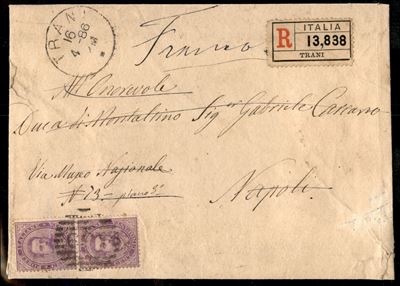 TRANI
16
4-86
Franco
R
ITALIA
13,838
TRANI
All'Onorevole
Duca di Montaltino Sig.r Gabriele
Via Museo Nazionale
N 13 - piano 3°
Napoli